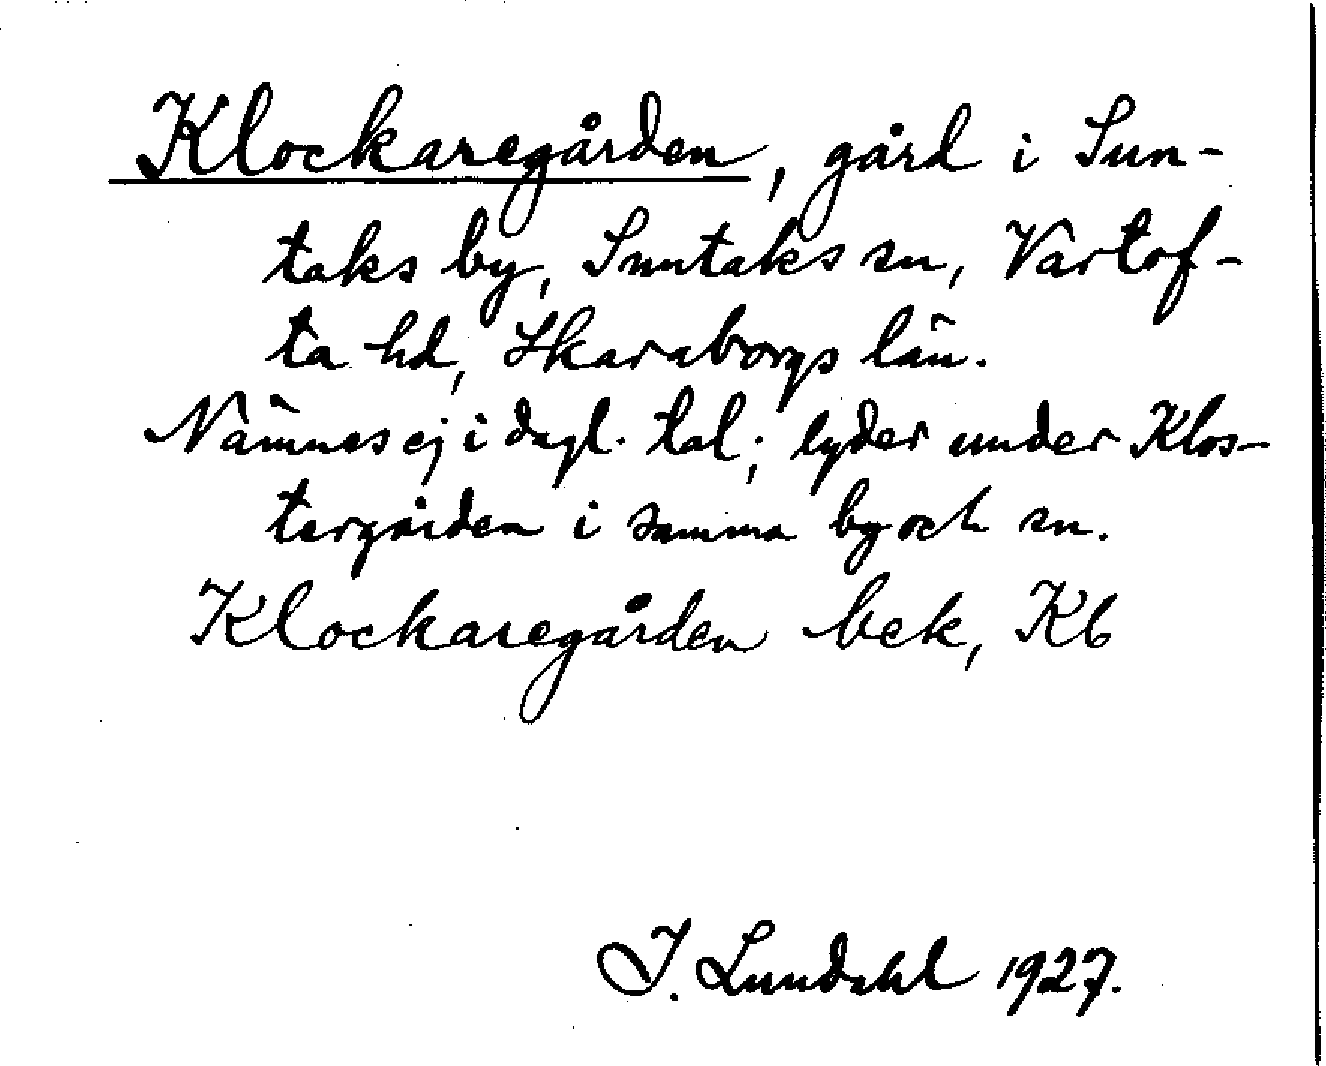 Klockaregården, gård i Sun-
taks by, Suntaks sn, Vartof-
ta hd, Skaraborgs län.
Nämnes ej i dagl. tal; lyder under Klos-
tergården i samma by och sn.
Klockaregården bek, Kb
I. Lundahl 1927.